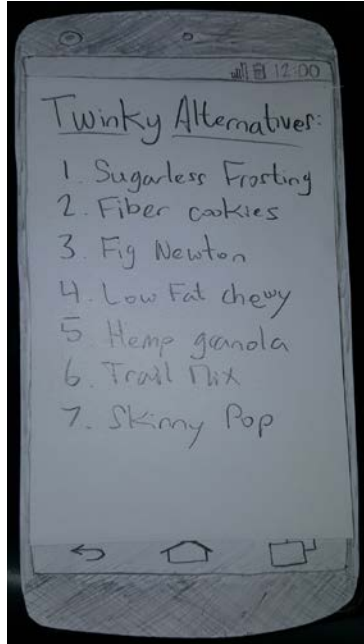 12:00
Twinky Alternatives:
1. Sugarless Frosting
2. Fiber cookies
3. Fig Newton
4. Low Fat chewy
5 Hemp granola
6. Trail Mix
7. Skinny Pop